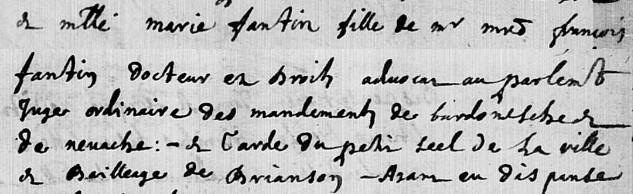 & mlle marie fantin fille de mr mre françois
fantin docteur en droit advocat au parlemt
Juge ordinaire des mandements de bardonesche &
de nevache : - & Garde du petit seel de la ville
& Bailleage de Brianson - Ayant eu dispanse